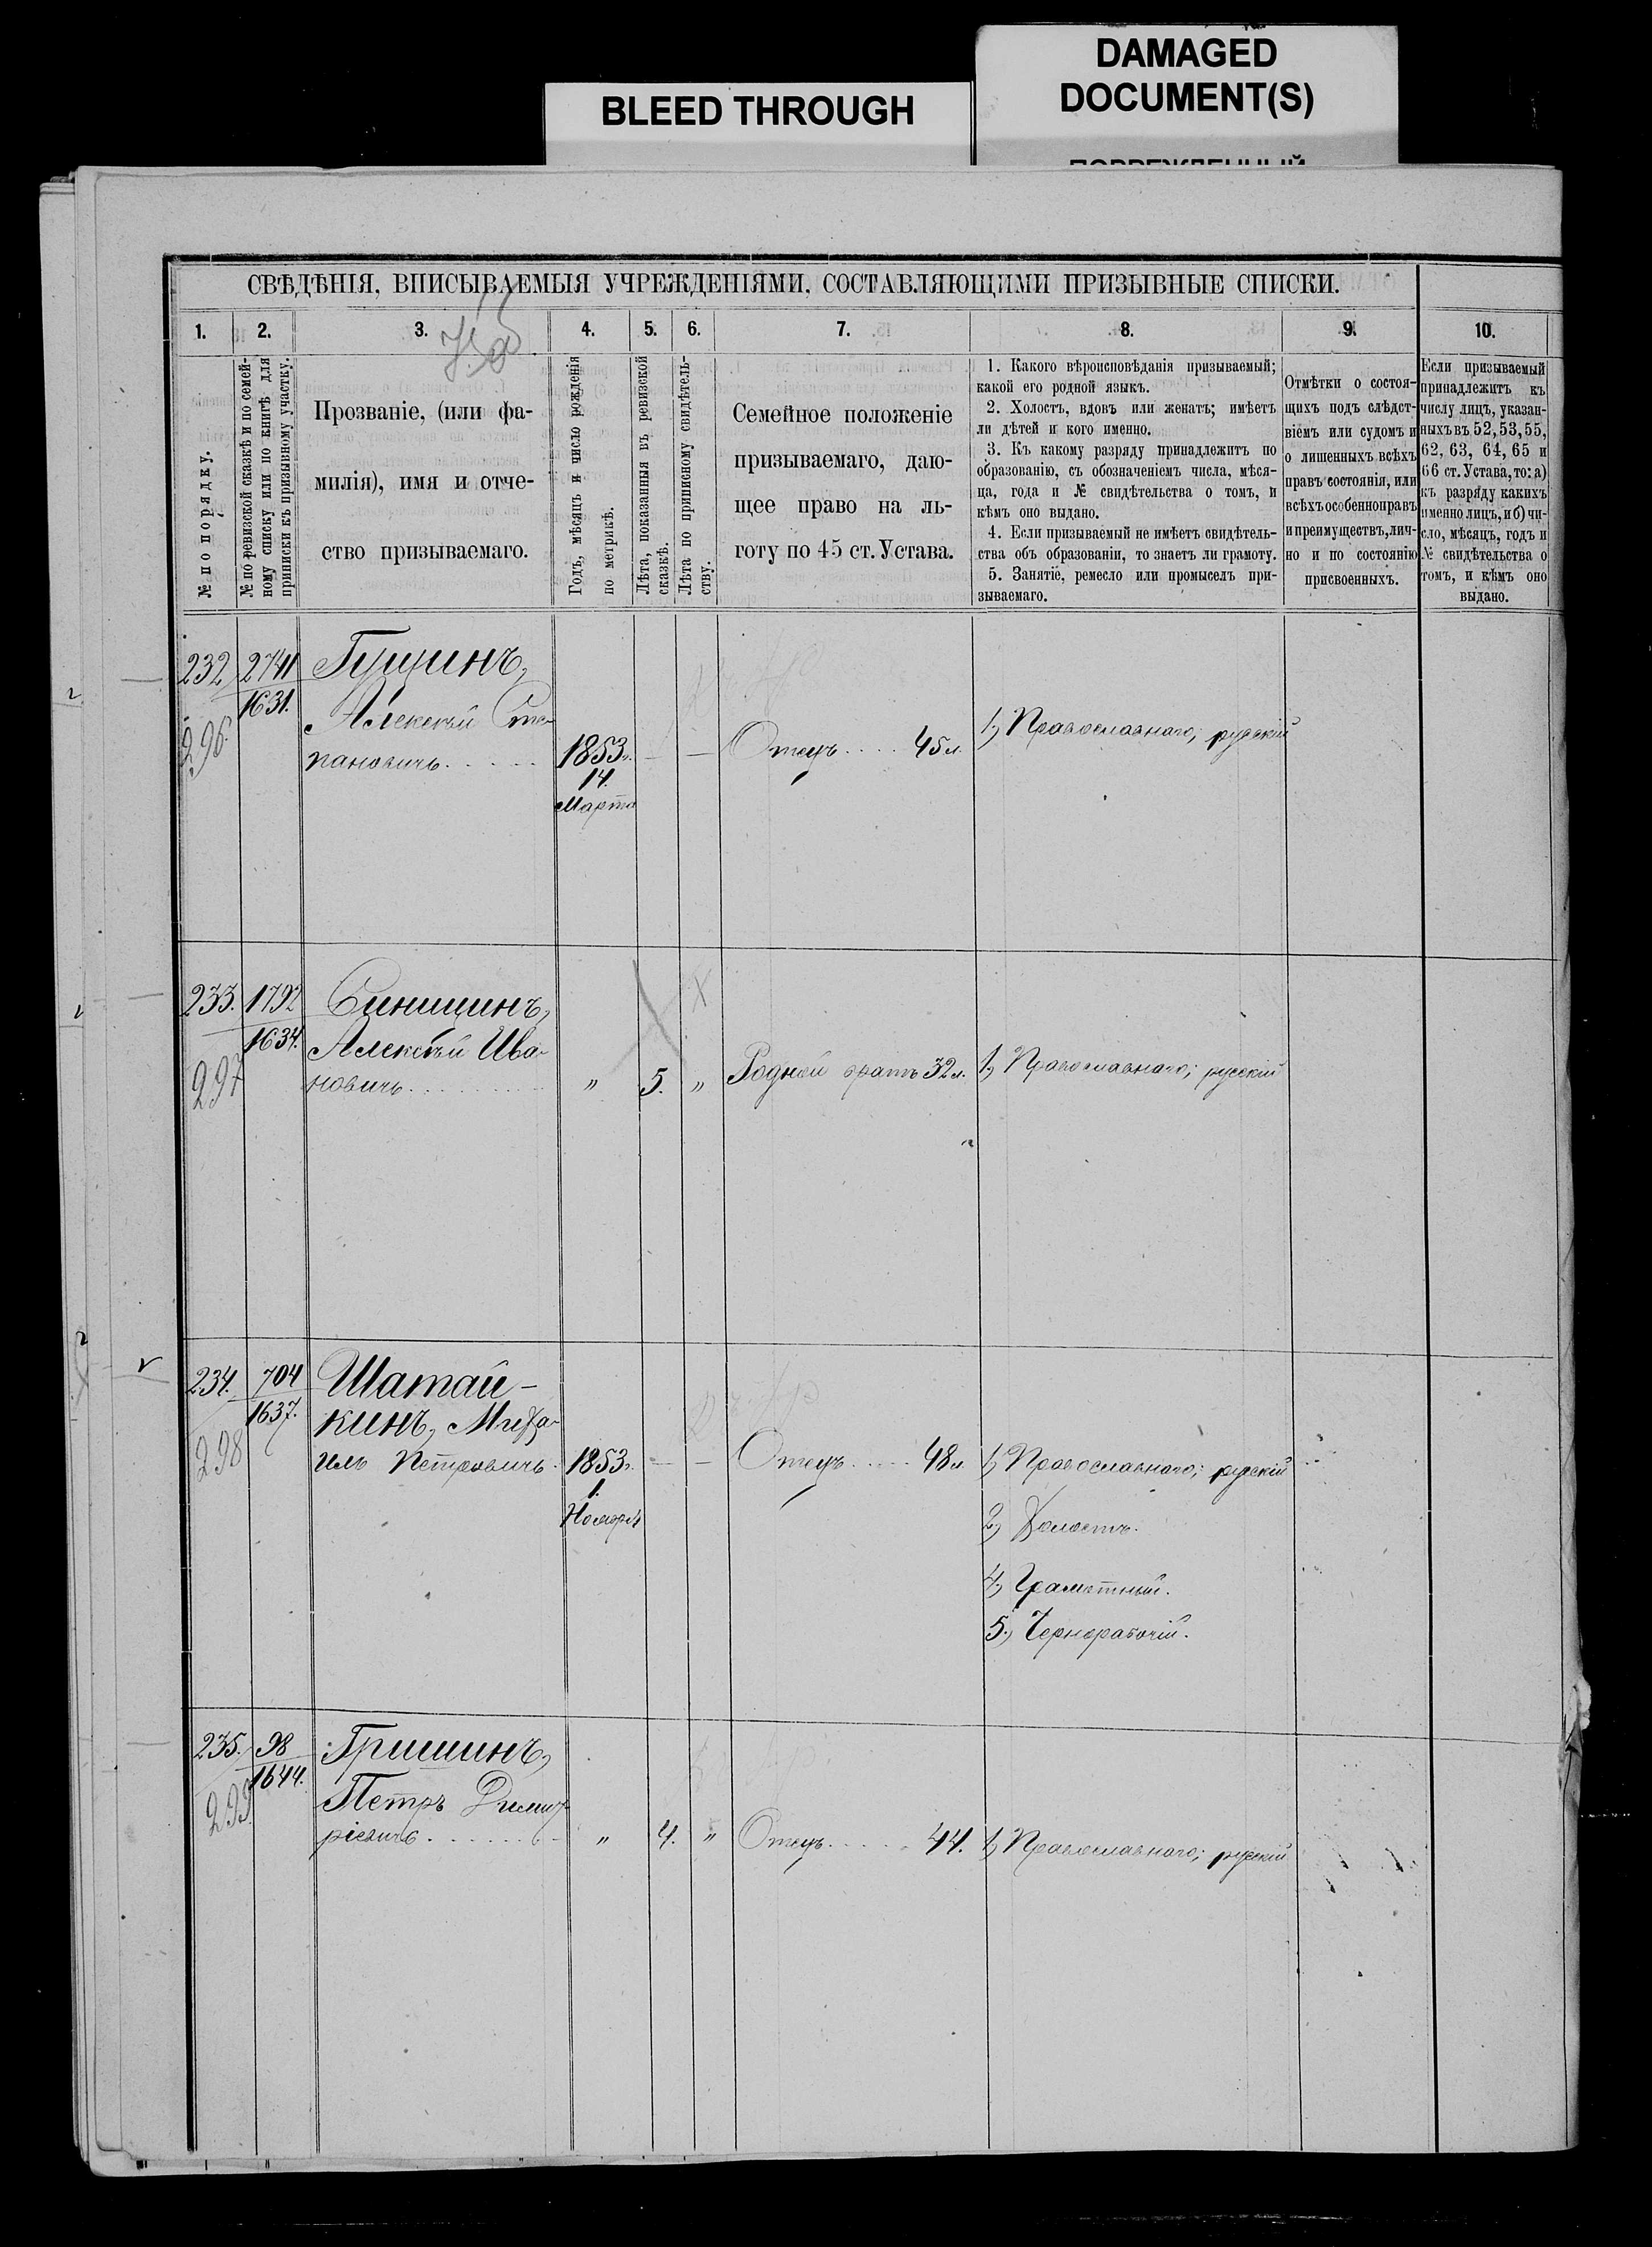 DAMAGED
DOCUMENT(S)
BLEED THROUGH
СВѢДѢНІЯ, ВПИСЫВАЕМЫЯ УЧРЕЖДЕНІЯМИ, СОСТАВЛЯЮЩИМИ ПРИЗЫВНЫЕ СПИСКИ.
1. 2. 3. 4. 5. 6. 7. 8. 9. 10.
№ по порядку.
№ по ревизской сказкѣ и по семей-
ному списку или по книгѣ для
приписки къ призывному участку.
Прозваніе, (или фа-
милія), имя и отче-
ство призываемаго.
Годъ, мѣсяцъ и число рожденія
по метрикѣ.
Лѣта, показанныя въ ревизской
сказкѣ.
Лѣта по приписному свидѣтель-
ству.
Семейное положеніе
призываемаго, даю-
щее право на ль-
готу по 45 ст. Устава.
1. Какого вѣроисповѣданія призываемый;
какой его родной языкъ.
2. Холостъ, вдовъ или женатъ; имѣетъ
ли дѣтей и кого именно.
3. Къ какому разряду принадлежитъ по
образованію, съ обозначеніемъ числа, мѣся-
ца, года и № свидѣтельства о томъ, и
кѣмъ оно выдано.
4. Если призываемый не имѣетъ свидѣтель-
ства объ образованіи, то знаетъ ли грамоту.
5. Занятіе, ремесло или промыселъ при-
зываемаго.
Отмѣтки о состоя-
щихъ подъ слѣдст-
віемъ или судомъ и
о лишенныхъ всѣхъ
правъ состоянія, или
всѣхъ особенно правъ
и преимуществъ, лич-
но и по состоянію
присвоенныхъ.
Если призываемый
принадлежитъ къ
числу лицъ, указан-
ныхъ въ 52, 53, 55,
62, 63, 64, 65 и
66 ст. Устава, то: а)
къ разряду какихъ
именно лицъ, и б) чи-
сло, мѣсяцъ, годъ и
№ свидѣтельства о
томъ, и кѣмъ оно
выдано.
232 2741 Гущинъ,
1631. Алексѣй Сте-
296. пановичъ 1853 г. — — Отецъ 45 л. 1, Православнаго; русскій
14.
Марта
233. 1792 Синицинъ,
1634. Алексѣй Ива-
297 новичъ " 5. " Родной братъ 32 л. 1, Православнаго; русскій
234. 704 Шатай-
1637. кинъ, Миха-
298 илъ Петровичъ 1853 г. — — Отецъ 48 л. 1, Православнаго; русскій
1.
Ноября
2, Холостъ.
4, Грамотный.
5, Чернорабочій.
235. 98 Гришинъ,
1644. Петръ Димит-
299. ріевичъ " 4. " Отецъ 44. 1, Православнаго; русскій